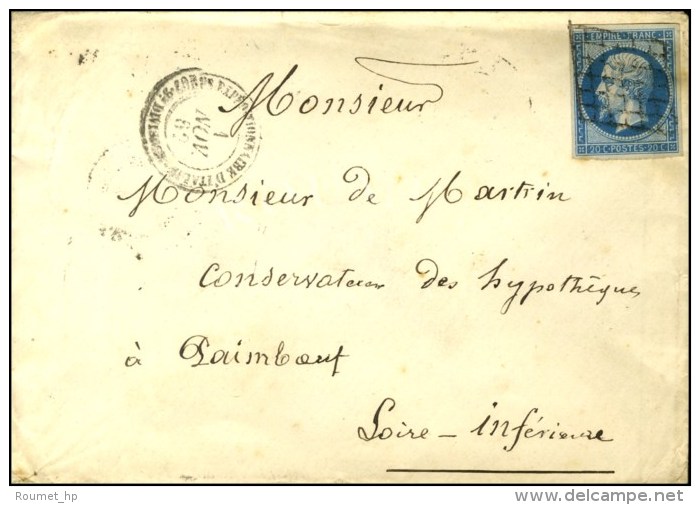 EMPIRE FRANC.
20 C. POSTES 20 C.
CORPS EXPEDITIONNAIRE D'ITALIE
1
NOV
Monsieur
Monsieur de Martrin
conservateur des hypothèques
à Paimboeuf
Loire - inférieure
Roumet_hp
www.delcampe.net